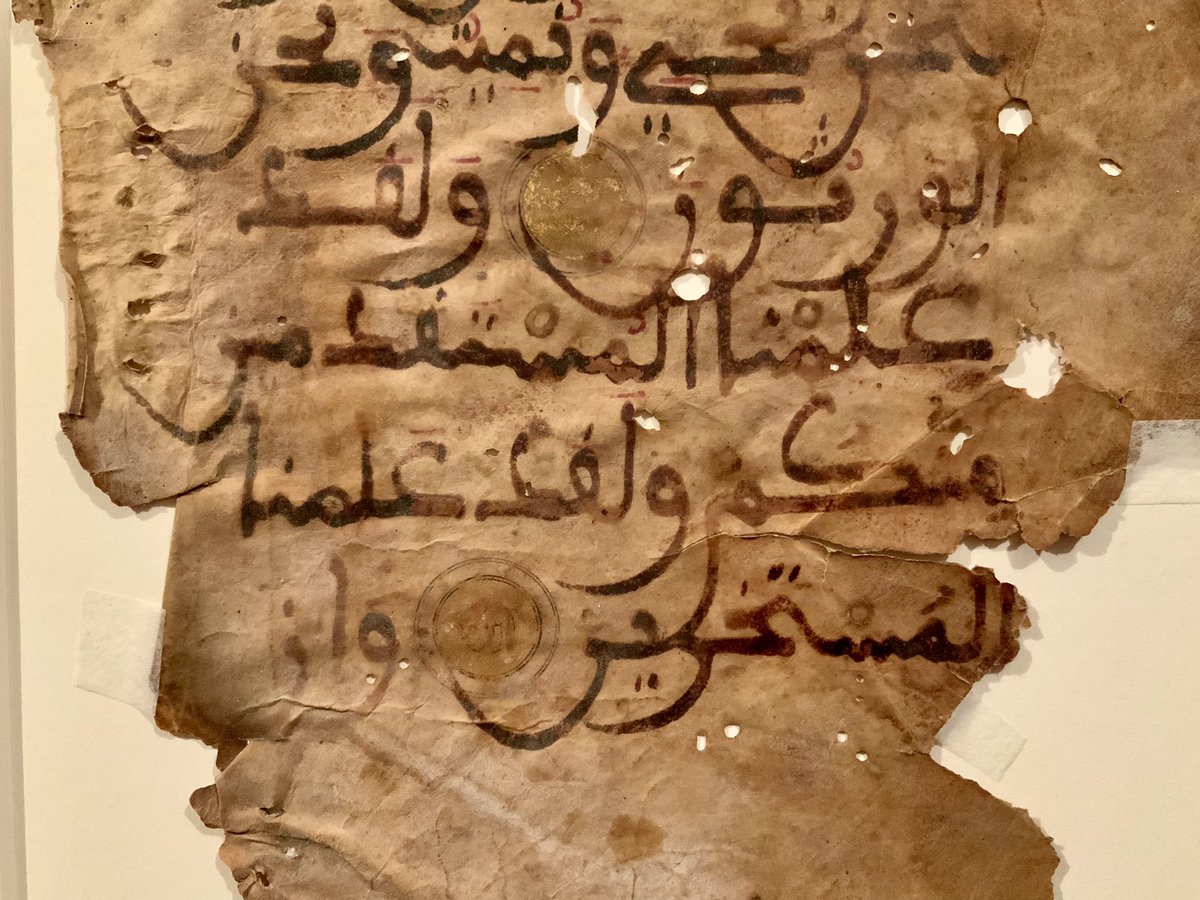 لنحن نحي ونميت ونحن
الورثون ولقد
علمنا المستقدمين
منكم ولقد علمنا
المستخرين وان